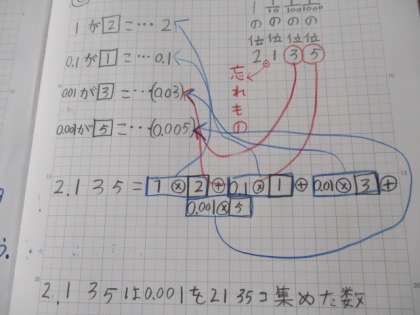 1が2=…2
0.1が1=…0.1
0.01が3=…(0.03)
0.001が5=…(0.005)
1 1/10 1/100 1/1000
の の の の
位 位 位 位
2.1 3 5
忘れもの
2.135=1×2+0.1×1+0.01×3+
0.001×5
2.135は0.001を2135コ集めた数